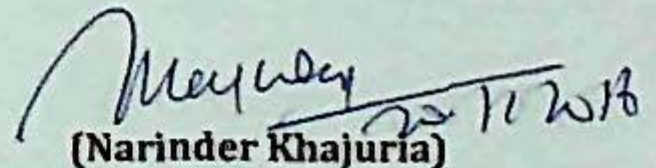 20.11.2018
(Narinder Khajuria)